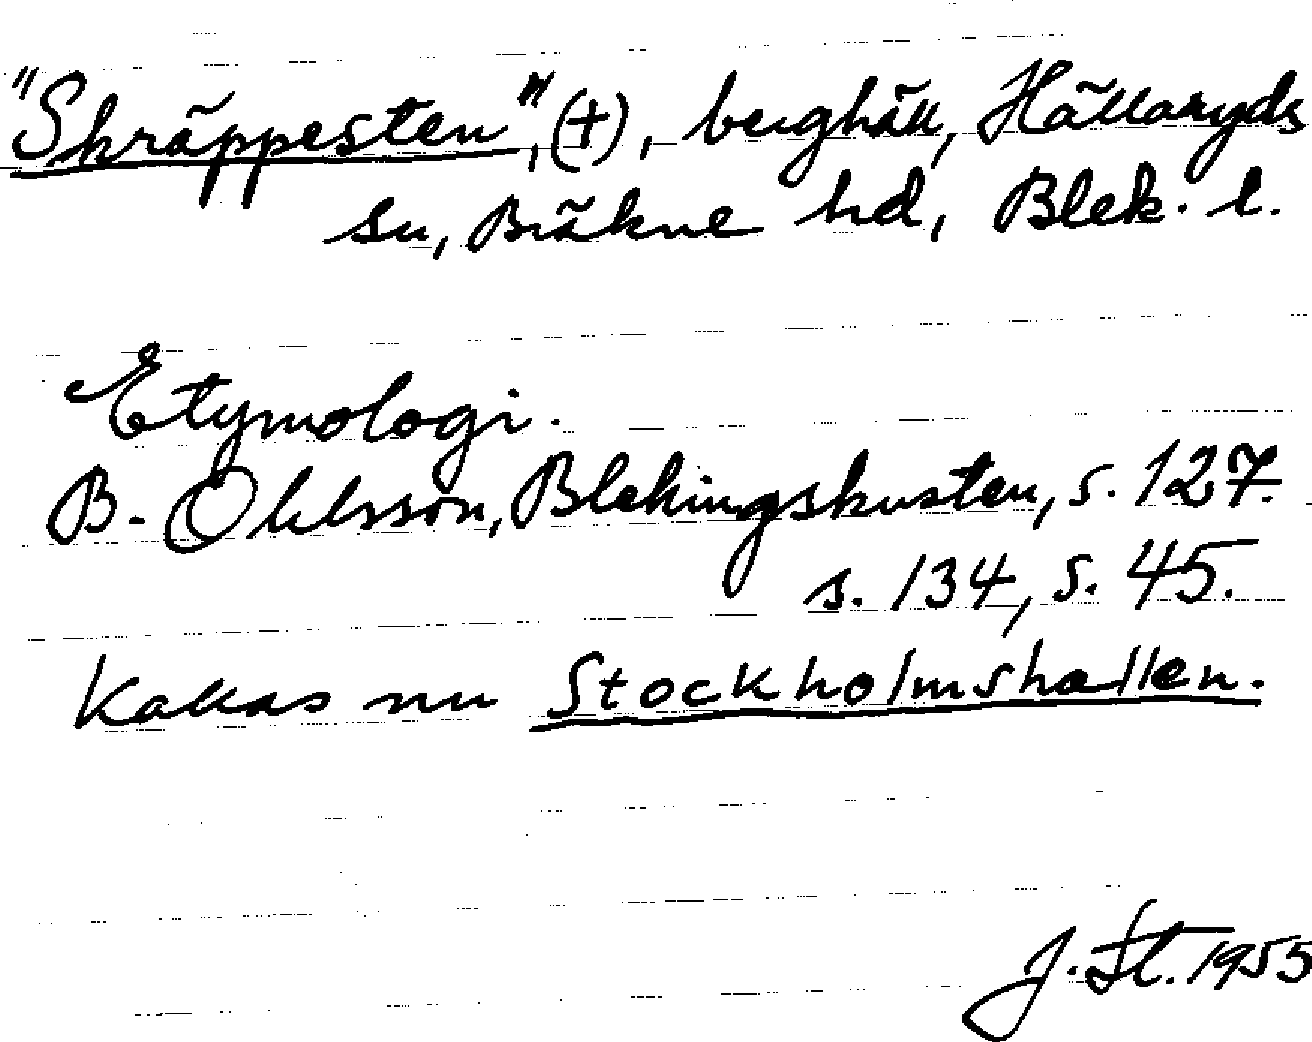 "Skräppesten", (+), berghäll, Hällaryds
sn, Bräkne hd, Blek. l.
Etymologi.
B. Ohlsson, Blekingskusten, s. 127.
s. 134, s. 45.
Kallas nu Stockholmshallen.
J. St. 1955